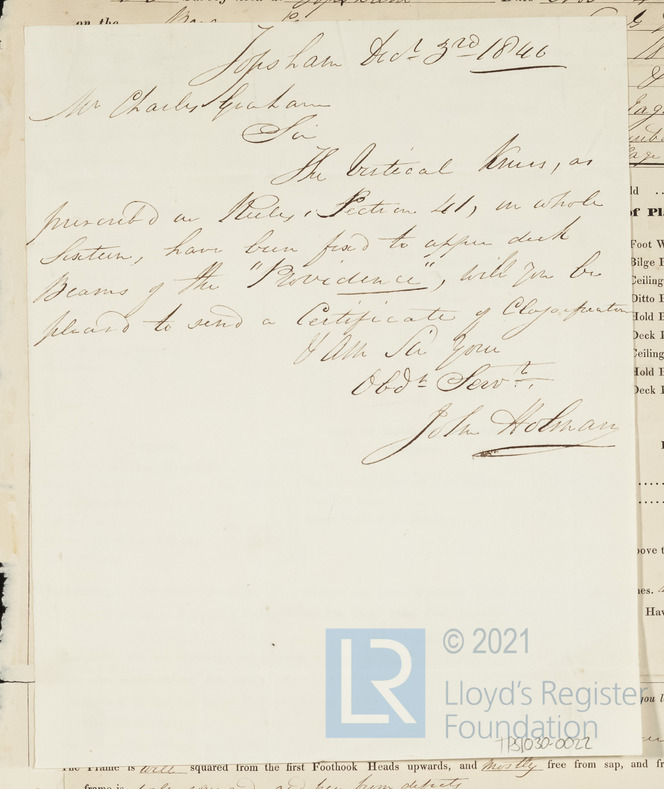 Topsham Decr. 3rd 1846
Mr Charles Graham
Sir
The Vertical Knees, as
prescribd in Rules, Section 41, in whole
Sixteen, have been fixd to upper deck
Beams of the "Providence", will you be
pleasd to send a Certificate of Classification
I am Sir your
Obdt. Servt.
John Holman
© 2021
LR
Lloyd's Register
Foundation
TPS1030-0022
on the
of Pl
Foot W
Bilge
Ceiling
Ditto
Hold
Deck
Ceiling
Hold
Deck
Hav
The Frame is well squared from the first Foothook Heads upwards, and mostly free from sap, and
frame is
free from defects